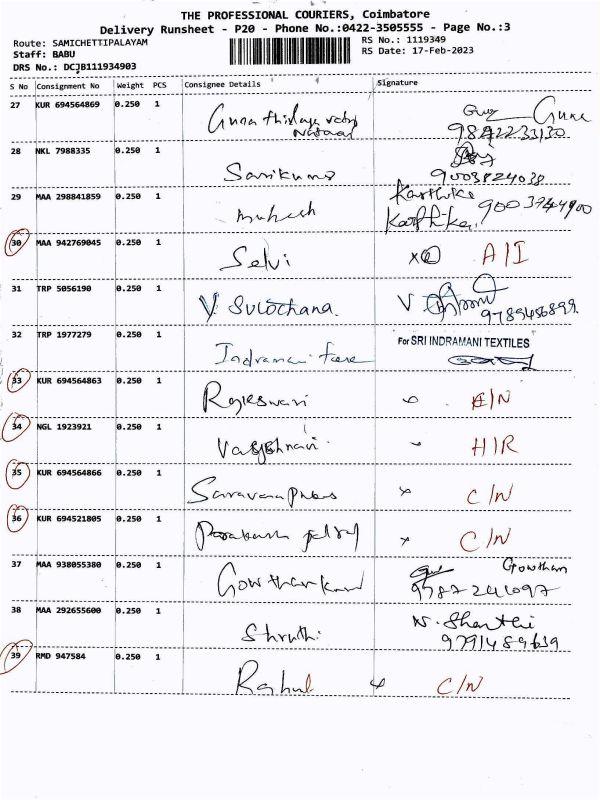 THE PROFESSIONAL COURIERS, Coimbatore
Delivery Runsheet - P20 - Phone No.:0422-3505555 - Page No.:3
Route: SAMICHETTIPALAYAM
RS No.: 1119349
Staff: BABU
RS Date: 17-Feb-2023
DRS No.: DCJB111934903
S No Consignment No Weight PCS Consignee Details Signature
27 KUR 694564869 0.250 1
Guna Guna
28 NKL 7988335 0.250 1
Sasikumar
9003824038
29 MAA 298841859 0.250 1
Karthika
Karthika
30 MAA 942769045 0.250 1
Selvi A/I
31 TRP 5056190 0.250 1
V. Sulochana. V
32 TRP 1977279 0.250 1
For SRI INDRAMANI TEXTILES
Indramani
33 KUR 694564863 0.250 1
Rajeswari
34 NGL 1923921 0.250 1
Vaishnavi H/R
35 KUR 694564866 0.250 1
C/N
36 KUR 694521805 0.250 1
C/N
37 MAA 938055380 0.250 1
Gowtham
38 MAA 292655600 0.250 1
N. Shanthi
Shruthi
39 RMD 947584 0.250 1
Rahul C/N